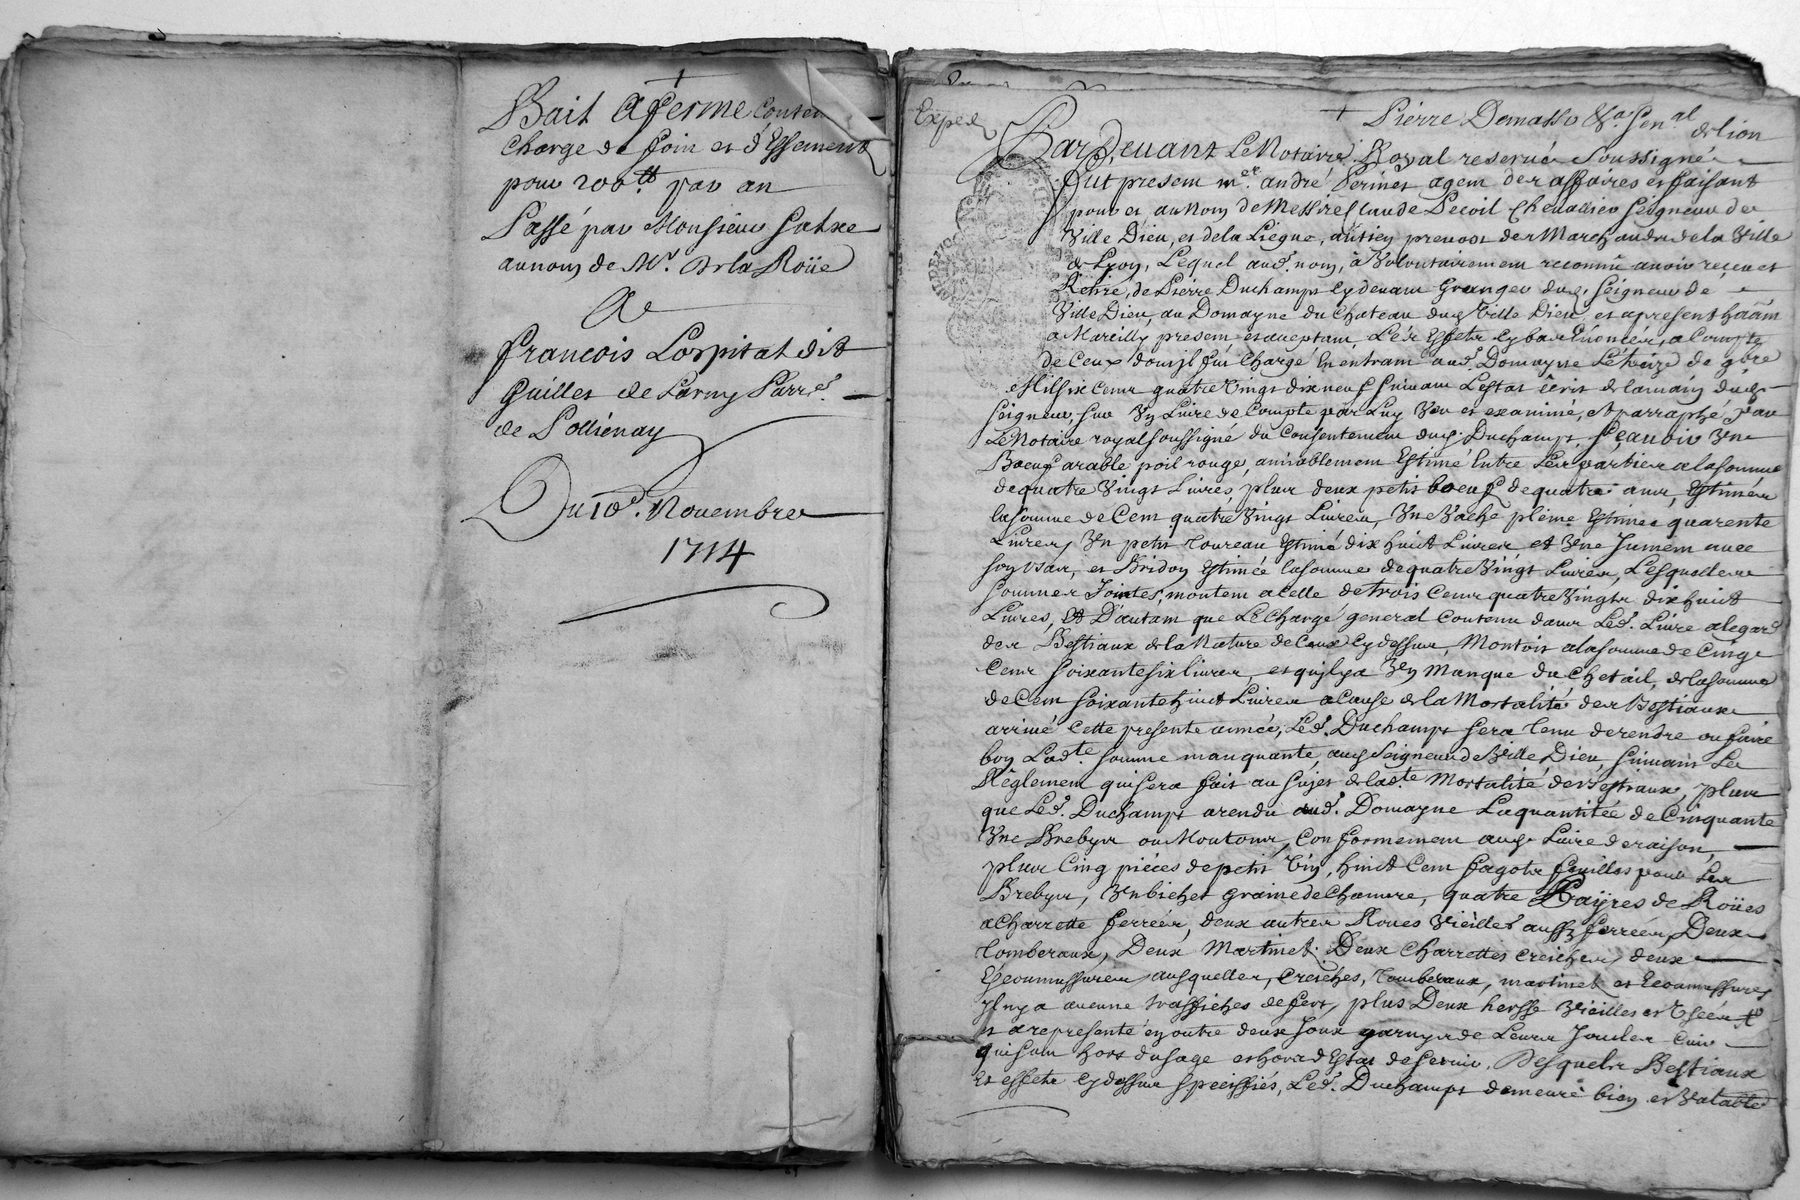 Bail A ferme Conten
charge de foin et d'Essement
pour 200tt par an
Passé par Monsieur
au nom de Mr. De la Roüe
A
françois Lospital dit
Guillet de Larny Parre.
de Pollienay
Du 10e. Novembre
1714
Exped
Pierre Damasse
de lion
Pardevant Le Notaire Royal reservé Soussigné
fut presem me. andré Perinet agem der affaires et faisant
pour et au Nom de Messire Claude Pecoil Chevallier Seigneur de
Ville Dieu, et de la Liegue, antien prevost der Marchands de la Ville
de Lyon, Lequel aud. nom, à Volontairement reconnû avoir reçeu et
Retiré, de Pierre Duchamps Cydevant Granger dud. Seigneur de
Ville Dieu, au Domayne du Chateau dud Ville Dieu, et apresent haam
a Mareilly presem et aceptam, Les Effets Cybas Enoncés, a Compte
de Ceux dont jl fut Chargé En entram aud. Domayne Le treize de
Mil six Cens quatre Vingt dix neuf suivam Lestat écrit de la main dud
Seigneur, sur Vn Livre de Compte par Luy Veu et examiné, et parraphé par
Le Notaire royal soussigné du Consentement dud. Duchamps, Sçauoir Vne
Boeuf arable poil rouge, amiablement Estimé Entre Les parties a la somme
de quatre Vingt Livres, plus deux petits boeufs de quatre ans, Estimés
la somme de Cent quatre Vingt Livres, Vne Vache pleine Estimée quarente
Livres, Vn petit Toureau Estimé dix huit Livres, et Vne Jument avec
son bas, et Bridon Estimée la somme de quatre Vingt Livres, Lesquelles
sommes Jointes, montent a Celle de trois Cens quatre Vingts dix huit
Livres, Et D'autam que Le Chargé general Contenu dans Led. Livre a legard
des Bestiaux de la Nature de Ceux Cydessus, Montoit a la somme de Cinq
Cens soixante six livres, et quil y a Vn Manque du Chetail, de la somme
de Cent soixante huit Livres a Cause de la Mortalité des Bestiaux
arrivé Cette presente année, Led. Duchamps sera tenu de rendre ou faire
bon Ladte. somme manquante, aud Seigneur de Ville Dieu, suivant Le
Réglement qui sera fait au sujet de ladte Mortalité des bestiaux, plus
que Led. Duchamps a rendu aud. Domayne La quantitée de Cinquante
Vne Brebys ou Moutons, Conformement aud Livre de raison,
plus Cinq pièces de petit Vin, huit Cent fagots feuilles pour Les
Brebys, Vn bichet Graine de Chanvre, quatre Payres de Roües
a Charrette ferrées, deux autres Roues Vieilles aussy ferrées, Deux
Tomberaux, Deux Martinet. Deux Charrettes Creiches, deux
ausquelles, Creiches, Tomberaux, martinet et
Il n'y a aucune traffiches de fert, plus Deux herse Vieilles et Vsées
et a representé en outre deux Joux garnys de Leurs Joules Cuir
qui sont hors dusage et hors d'Estat de servir, Desquels Bestiaux
Et effets Cydessus speciffiés, Led. Duchamps demeure bien et Valable